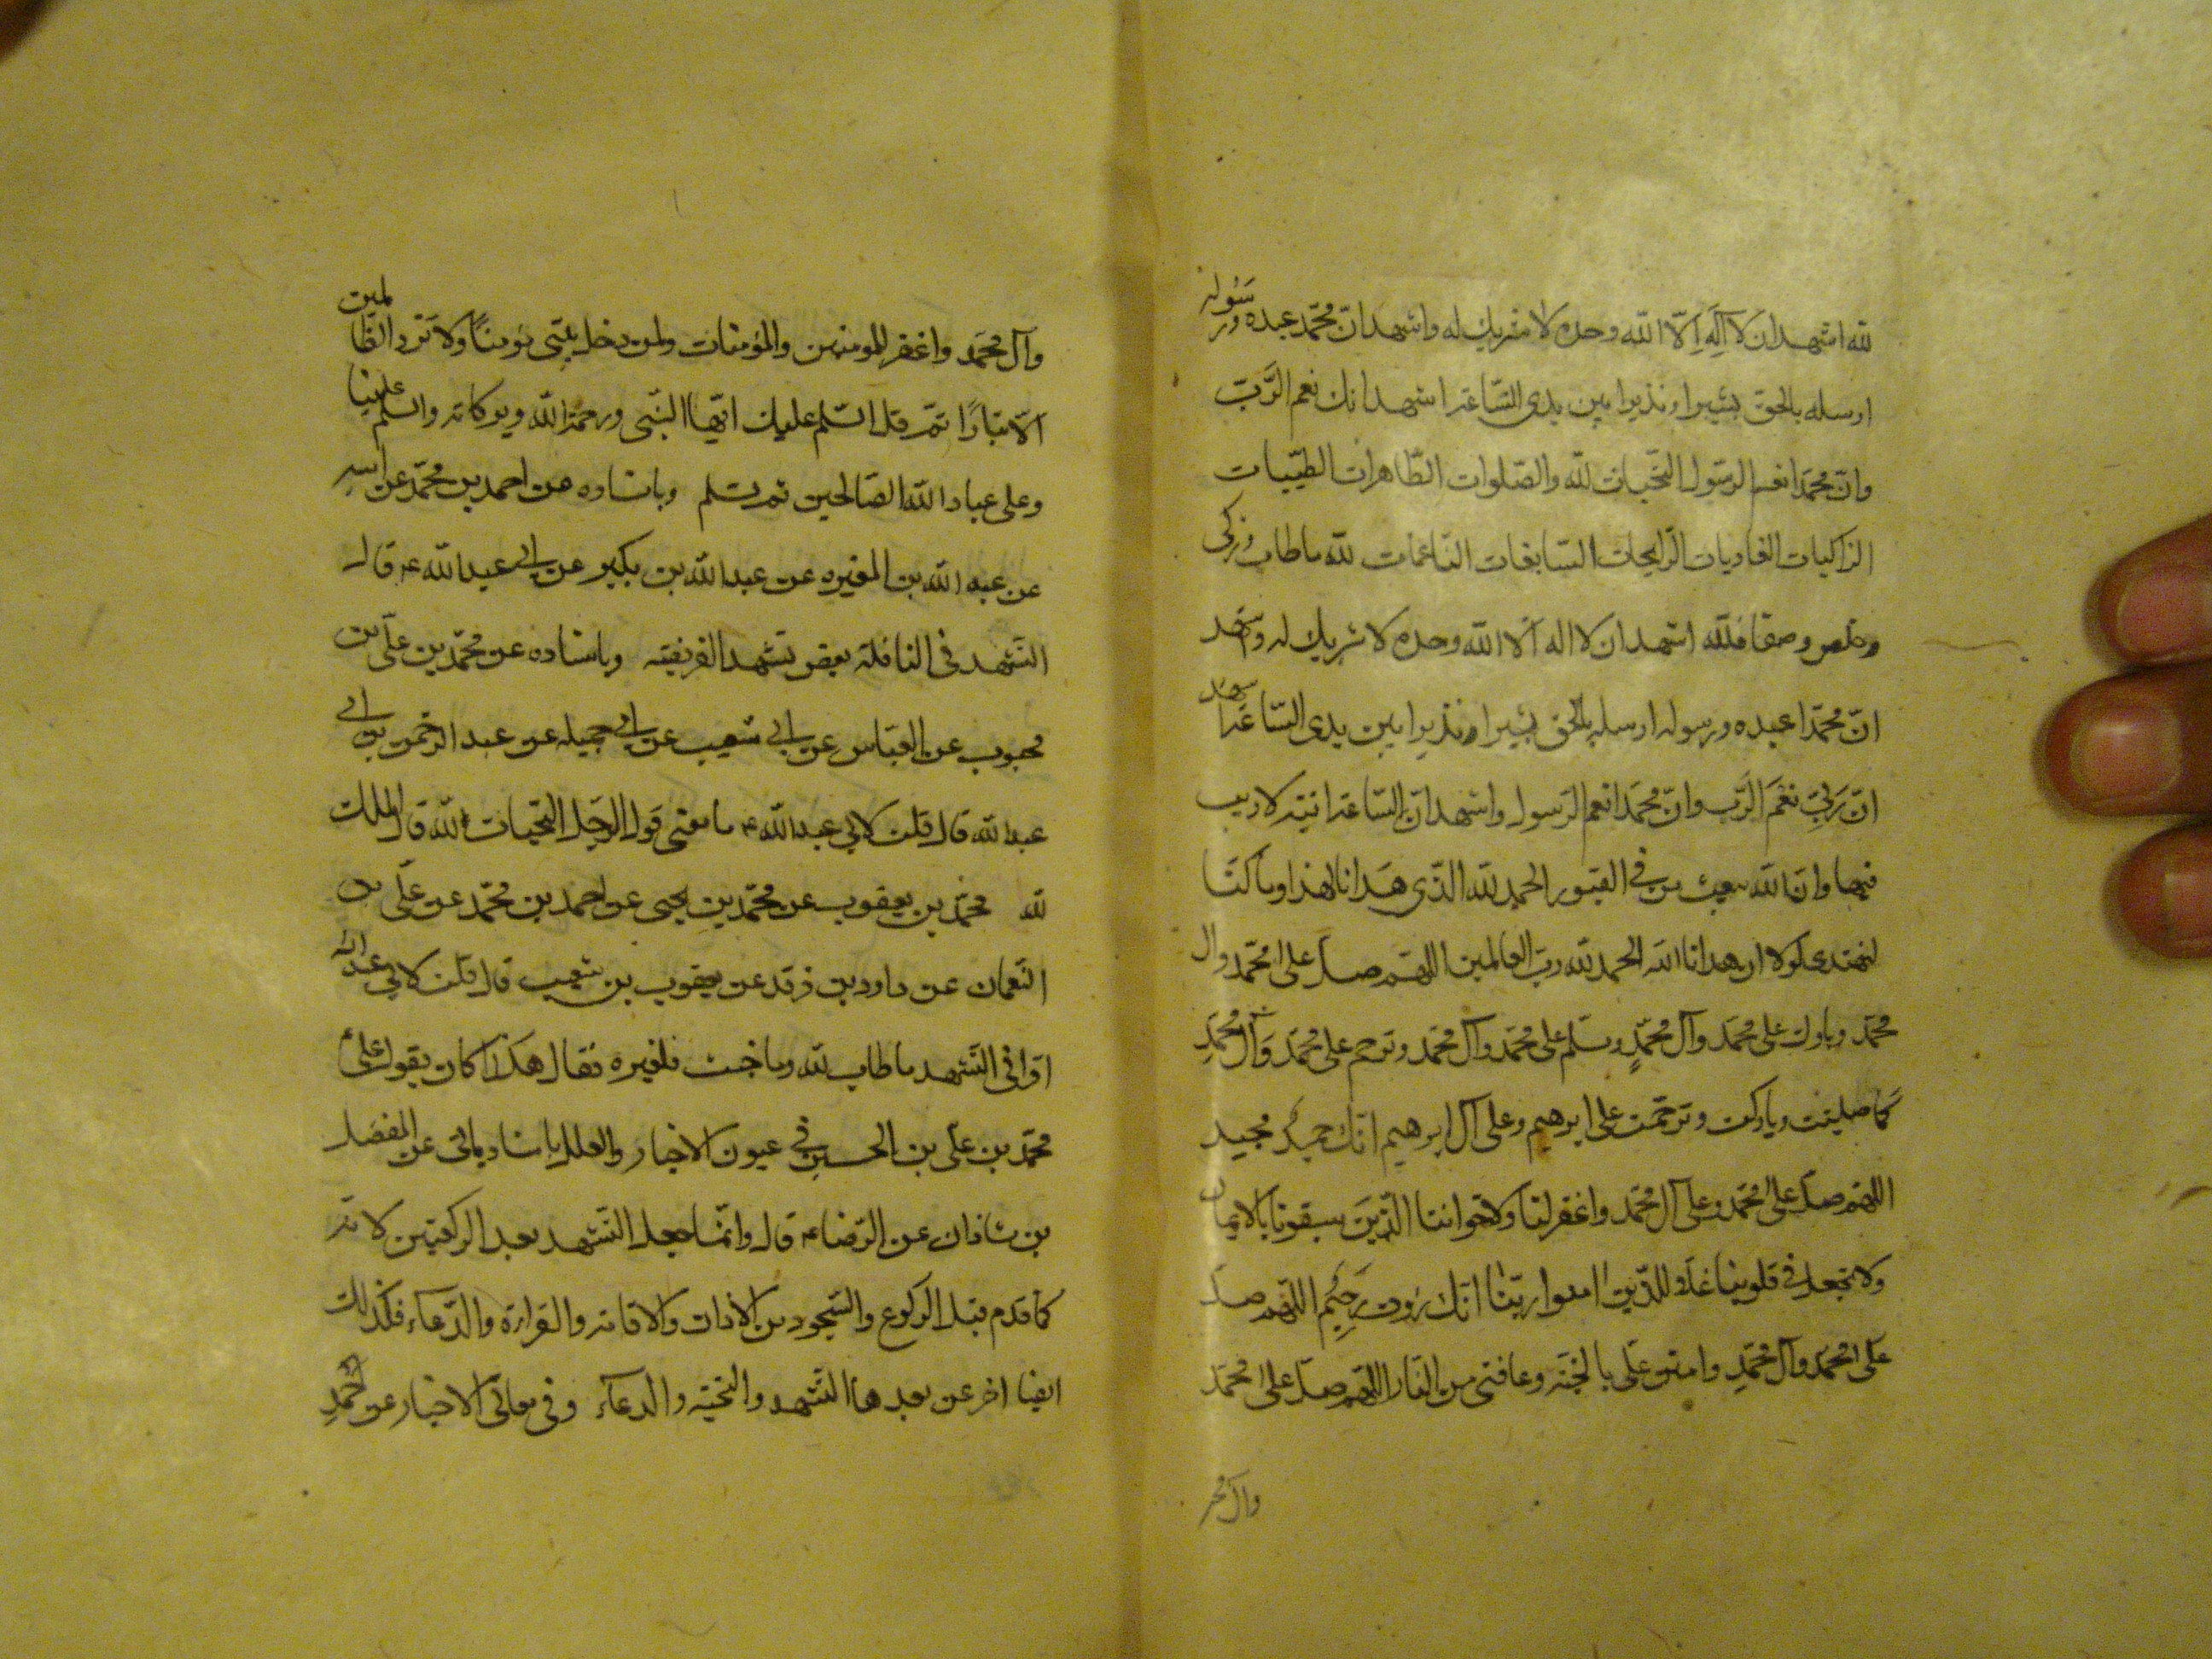 لله اشهد ان لا اله الا الله وحده لا شريك له واشهد ان محمد عبده ورسوله
ارسله بالحق بشيرا ونذيرا بين يدى الساعة اشهد انك نعم الرَّبّ
وان محمدا نعم الرسول التحيات لله والصلوات الطاهرات الطيبات
الزاكيات الغاديات الرايحات السابغات الناعمات لله ما طاب وزكى
وخلص وصفا فلله اشهد ان لا اله الا الله وحده لا شريك له واشهد
انّ محمدا عبده ورسوله ارسله بالحق بشيرا ونذيرا بين يدى الساعة اشهد
انّ ربى نعم الرَّب وان محمدا نعم الرسول واشهد ان الساعة اتية لا ريب
فيها وان الله يبعث من فى القبور الحمد لله الذى هدانا لهذا وما كنا
لنهتدى لولا ان هدانا الله الحمد لله رب العالمين اللهم صل على محمد وال
محمد وبارك على محمد وآل محمد وسلم على محمد وآل محمد وترحم على محمد وآل محمد
كما صليت وباركت وترحمت على ابرهيم وعلى آل ابرهيم انك حميد مجيد
اللهم صل على محمد وعلى آل محمد واغفر لنا ولاخواننا الذين سبقونا بالايمان
ولا تجعل فى قلوبنا غلا للذين امنوا ربنا انك رؤوف رحيم اللهم صل
على محمد وآل محمد وامنن على بالجنة وعافنى من النار اللهم صل على محمد
وآل محمد
وآل محمد واغفر للمومنين والمؤمنات ولمن دخل بيتى مؤمنا ولا تزد الظالمين
الا تبارًا ثم قل السلم عليك ايها النبى ورحمة الله وبركاته والسلم علينا
وعلى عباد الله الصالحين ثم تسلم وباسناده عن احمد بن محمد عن ابيه
عن عبد الله بن المغيره عن عبد الله بن بكير عن ابى عبد الله ع قال
التشهد فى النافلة بعض تشهد الفريضة وباسناده عن محمد بن على بن
محبوب عن العباس عن ابى شعيب عن ابى جميله عن عبد الرحمن بن ابى
عبد الله قال قلت لابى عبد الله ع ما معنى قول الرجل التحيات لله قال الملك
لله محمد بن يعقوب عن محمد بن يحيى عن احمد بن محمد عن على بن
النعمان عن داود بن فرقد عن يعقوب بن شعيب قال قلت لابى عبد الله
اقرا فى التشهد ما طاب لله وما خبث فلغيره فقال هكذا كان يقول على ع
محمد بن على بن الحسين فى عيون الاخبار والعلل باسناد ياتى عن الفضل
بن شاذان عن الرضا ع قال وانما جعل التشهد بعد الركعتين لانه
كما قدم قبل الركوع والسجود من الاذان والاقامه والقراءة والدعاء فكذلك
ايضا اخر عن بعدها التشهد والتحية والدعآء وفى معانى الاخبار عن احمد